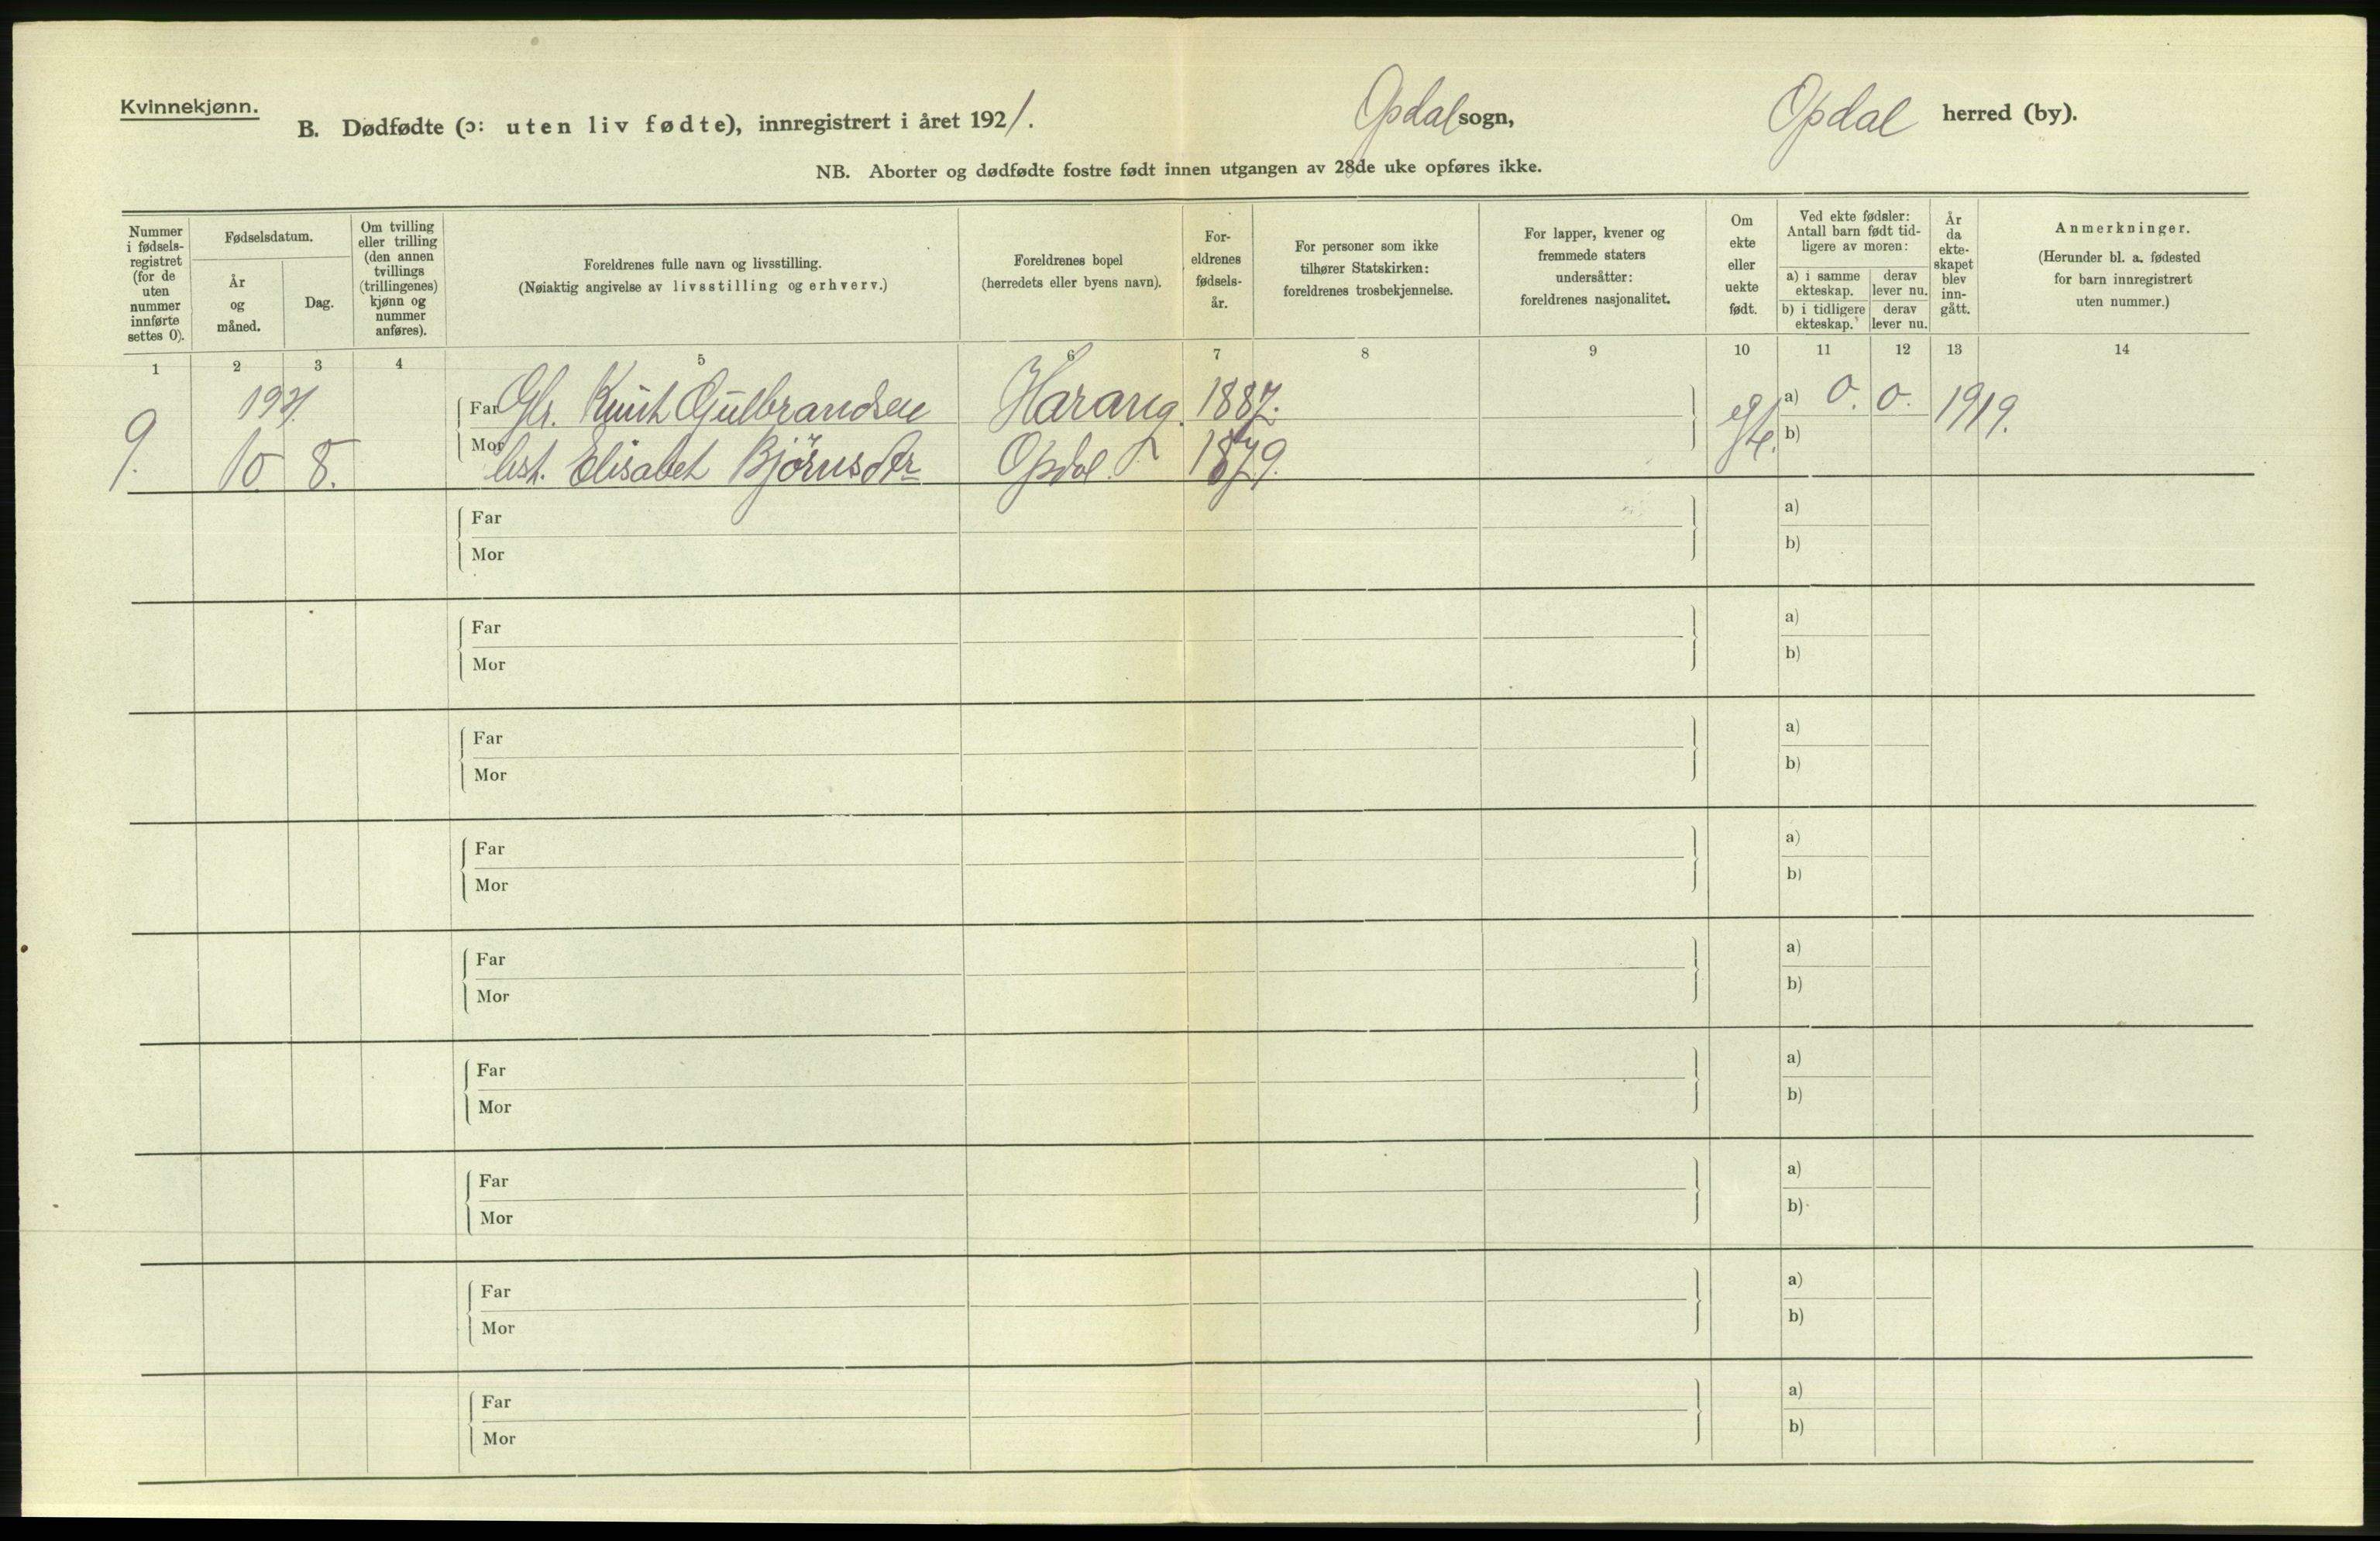 Kvinnekjønn.
B. Dødfødte (ɔ: uten liv fødte), innregistrert i året 1921. Opdal sogn, Opdal herred (by).
NB. Aborter og dødfødte fostre født innen utgangen av 28de uke opføres ikke.
Nummer i fødsels- registret (for de uten nummer innførte settes 0).
Fødselsdatum.
År og måned.
Dag.
Om tvilling eller trilling (den annen tvillings (trillingenes) kjønn og nummer anføres).
Foreldrenes fulle navn og livsstilling.
(Nøiaktig angivelse av livsstilling og erhverv.)
Foreldrenes bopel
(herredets eller byens navn).
For- eldrenes fødsels- år.
For personer som ikke tilhører Statskirken: foreldrenes trosbekjennelse.
For lapper, kvener og fremmede staters undersåtter: foreldrenes nasjonalitet.
Om ekte eller uekte født.
Ved ekte fødsler: Antall barn født tid- ligere av moren:
a) i samme ekteskap.
derav lever nu.
b) i tidligere ekteskap.
derav lever nu.
År da ekte- skapet blev inn- gått.
Anmerkninger.
(Herunder bl. a. fødested for barn innregistrert uten nummer.)
1 2 3 4 5 6 7 8 9 10 11 12 13 14
1921 Far Gbr. Knut Gulbrandsen Harang. 1887. a) 0. 0. 1919.
9. 10 8. Mor Elisabet Björnsdr Opdal 1879. egte. b)
Far a)
Mor b)
Far a)
Mor b)
Far a)
Mor b)
Far a)
Mor b)
Far a)
Mor b)
Far a)
Mor b)
Far a)
Mor b)
Far a)
Mor b)
Far a)
Mor b)